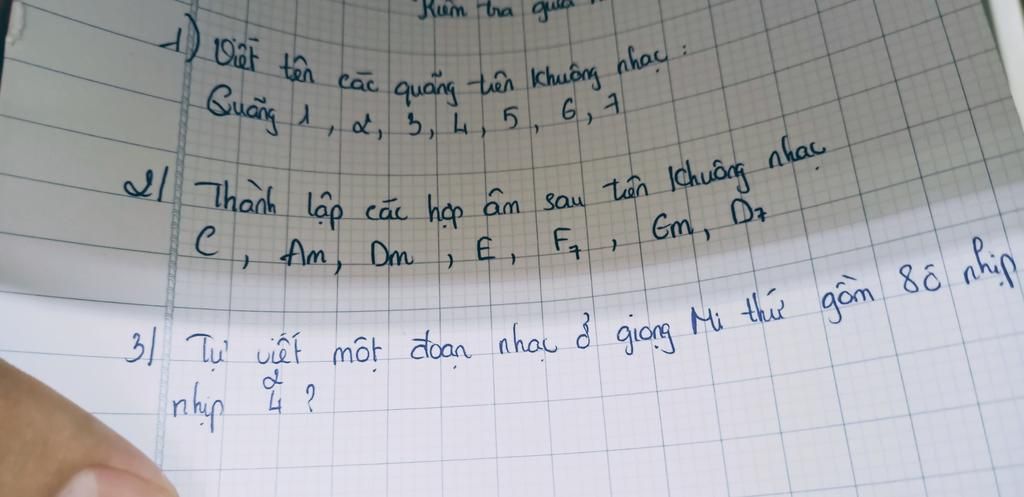 Kiểm tra giữa
1) Viết tên các quãng trên khuông nhạc:
Quãng 1, 2, 3, 4, 5, 6, 7
2/ Thành lập các hợp âm sau trên khuông nhạc
C, Am, Dm, E, F7, Em, D7
3/ Tự viết một đoạn nhạc ở giọng Mi thứ gồm 8 ô nhịp
nhịp 2/4 ?